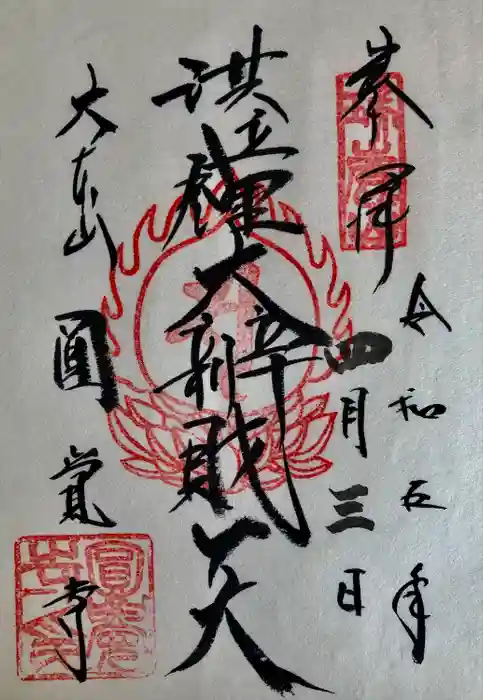 奉拝
令和五年
四月三日
洪鐘大辨財天
大本山圓覚寺